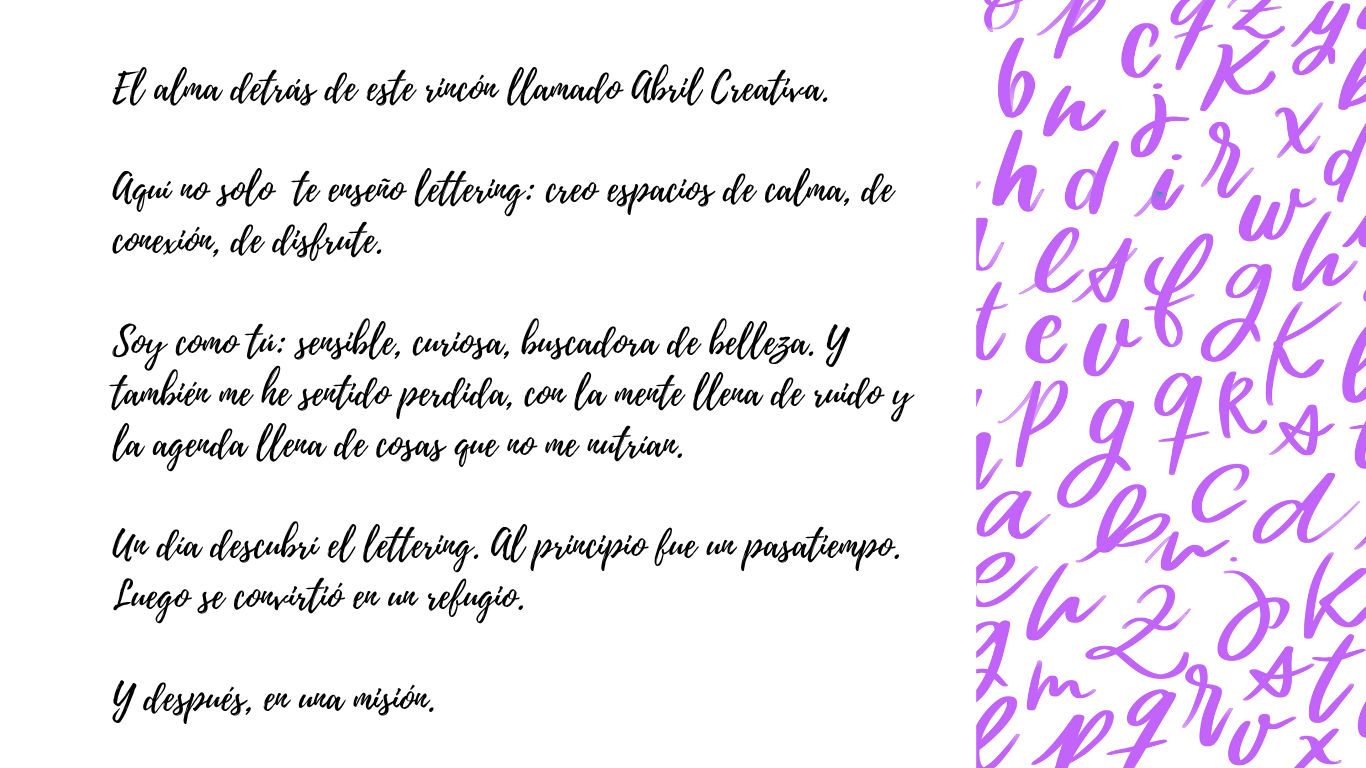 El alma detrás de este rincón llamado Abril Creativa.
Aquí no solo  te enseño lettering: creo espacios de calma, de
conexión, de disfrute.
Soy como tú: sensible, curiosa, buscadora de belleza. Y
también me he sentido perdida, con la mente llena de ruido y
la agenda llena de cosas que no me nutrían.
Un día descubrí el lettering. Al principio fue un pasatiempo.
Luego se convirtió en un refugio.
Y después, en una misión.